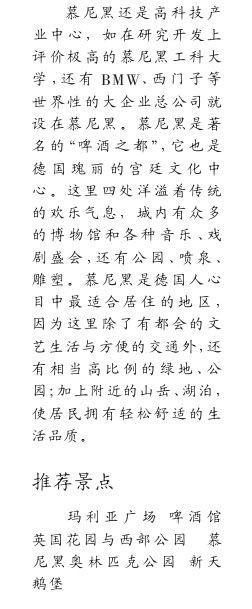 慕尼黑还是高科技产
业中心，如在研究开发上
评价极高的慕尼黑工科大
学，还有 BMW、西门子等
世界性的大企业总公司就
设在慕尼黑。慕尼黑是著
名的“啤酒之都”，它也是
德国瑰丽的宫廷文化中
心。这里四处洋溢着传统
的欢乐气息，城内有众多
的博物馆和各种音乐、戏
剧盛会，还有公园、喷泉、
雕塑。慕尼黑是德国人心
目中最适合居住的地区，
因为这里除了有都会的文
艺生活与方便的交通外，还
有相当高比例的绿地、公
园；加上附近的山岳、湖泊，
使居民拥有轻松舒适的生
活品质。
推荐景点
玛利亚广场 啤酒馆
英国花园与西部公园 慕
尼黑奥林匹克公园 新天
鹅堡